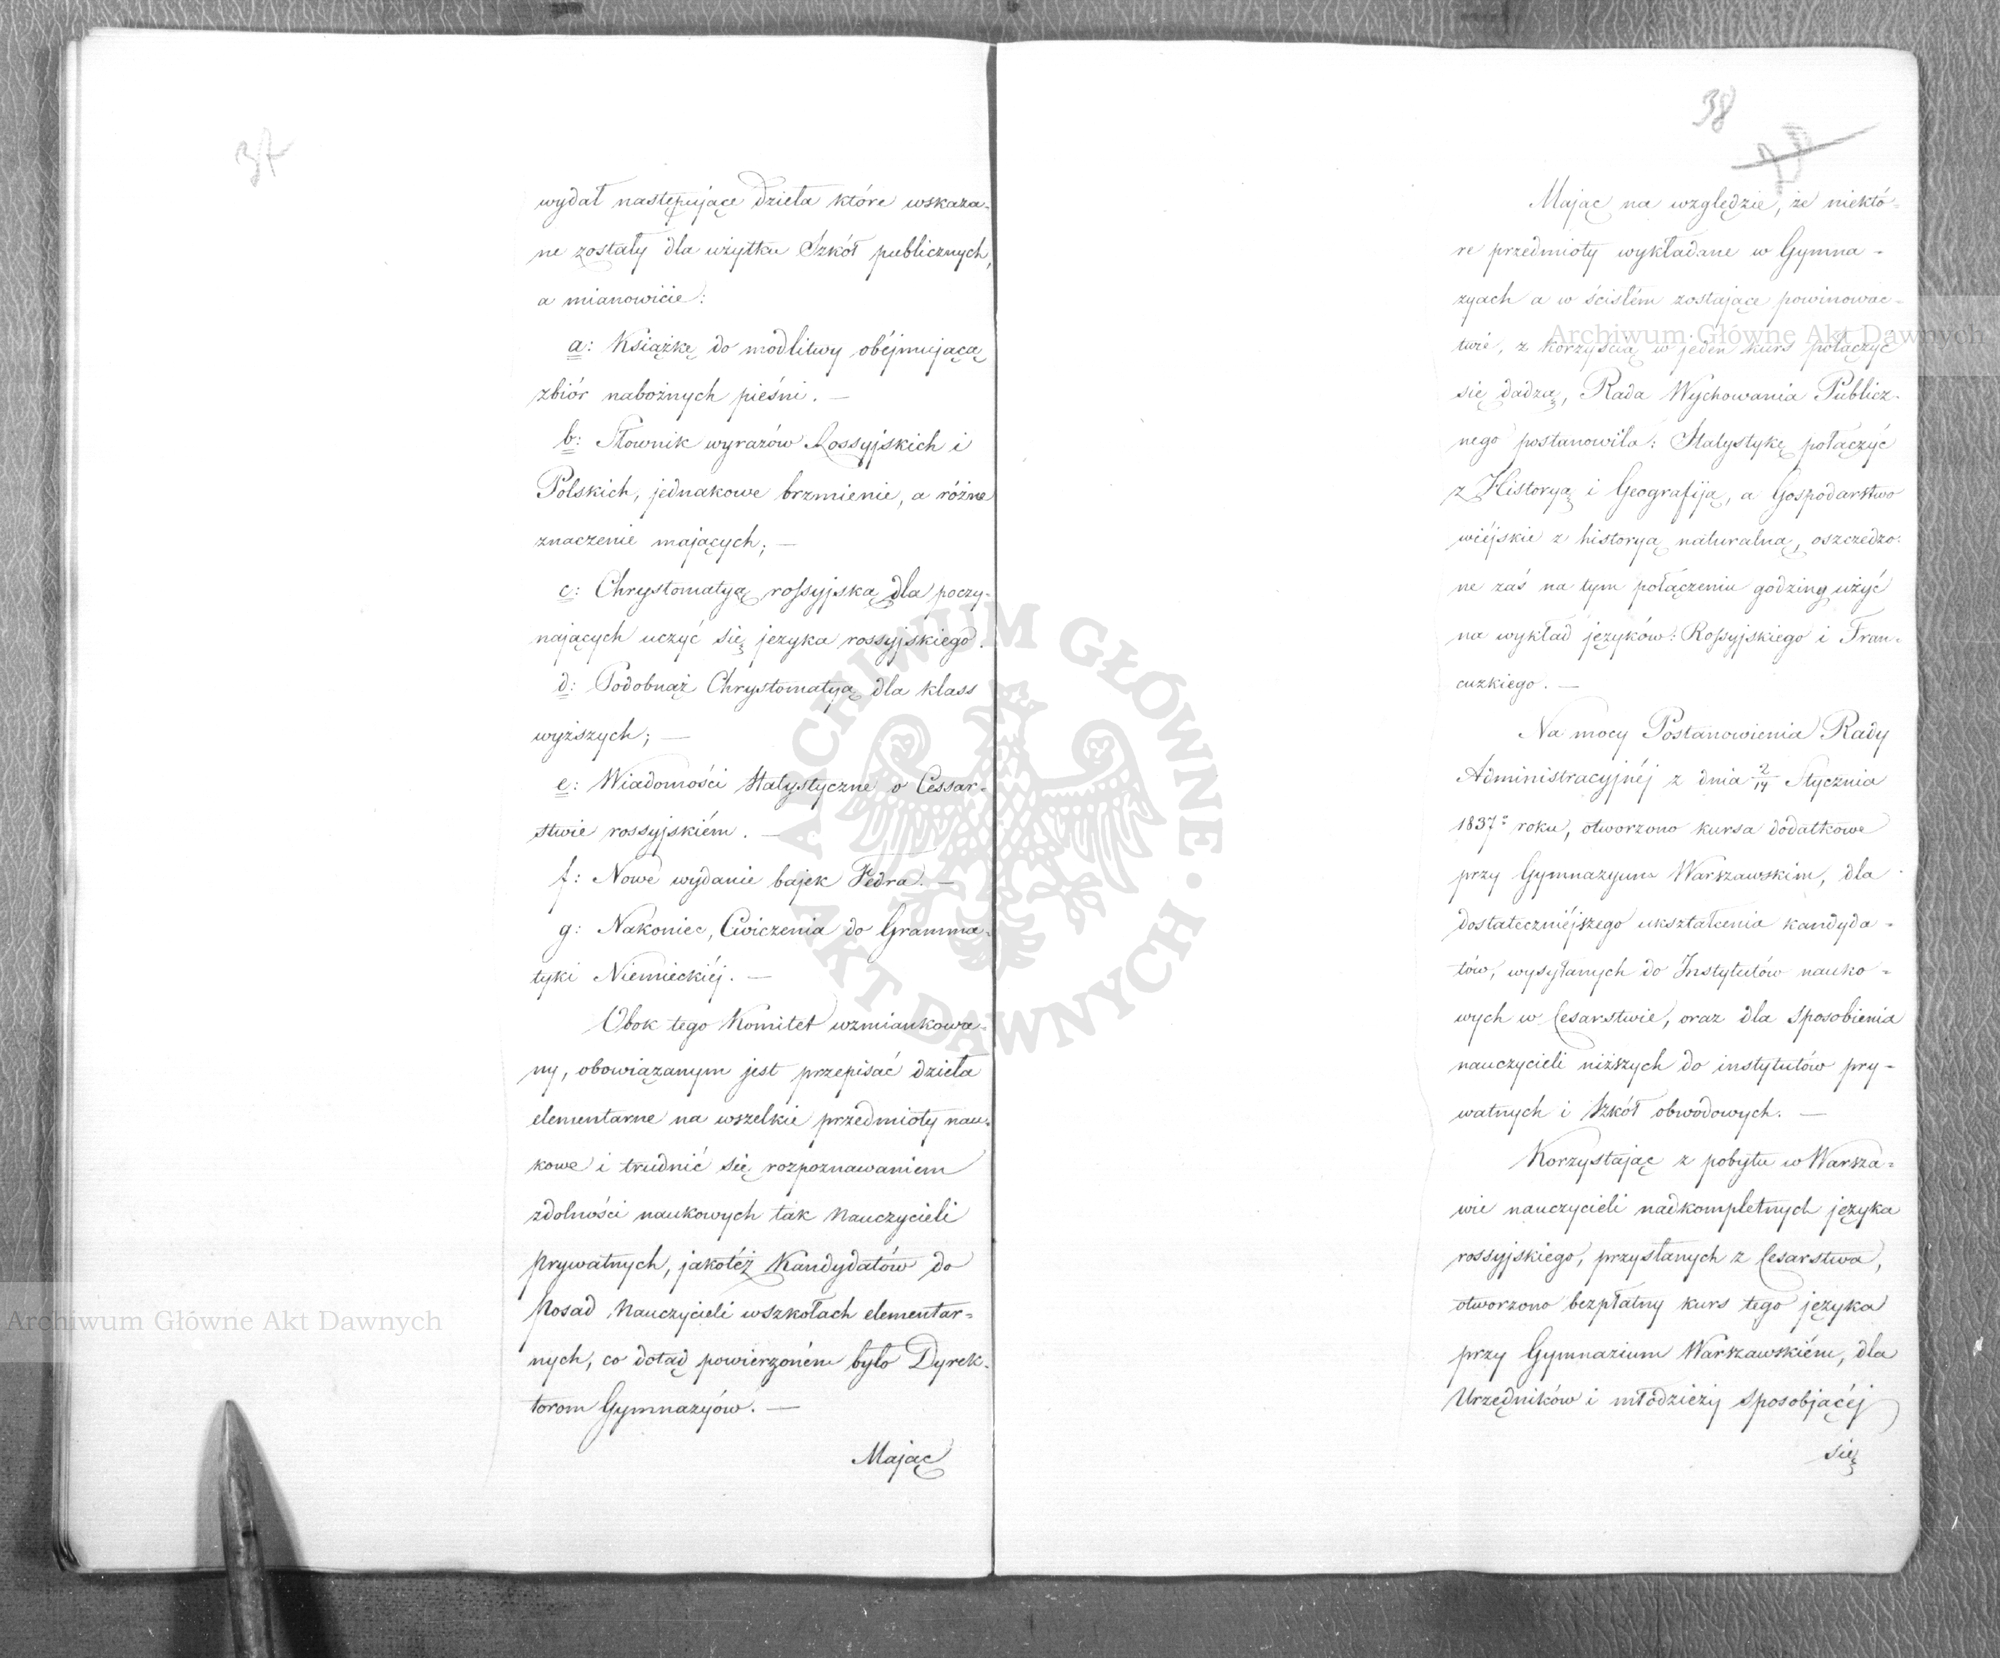 37
wydał następujące dzieła które wskaza-
ne zostały dla użytku Szkół publicznych,
a mianowicie:
a: Książkę do modlitwy obéjmującą
zbiór nabożnych pieśni. —
b: Słownik wyrazów Rossyjskich i
Polskich, jednakowe brzmienie, a różne
znaczenie mających; —
c: Chrystomatyą rossyjską dla poczy-
nających uczyć się języka rossyjskiego.
d: Podobnąż Chrystomatyą dla klass
wyższych; —
e: Wiadomości Statystyczne o Cessar-
stwie rossyjskiém. —
f: Nowe wydanie bajek Fedra. —
g: Nakoniec, Cwiczenia do Gramma-
tyki Niemieckiéj. —
Obok tego Komitet wzmiankowa-
ny, obowiązanym jest przepisać dzieła
elementarne na wszelkie przedmioty nau-
kowe i trudnić się rozpoznawaniem
zdolności naukowych tak Nauczycieli
Prywatnych, jakotéż Kandydatów do
Posad Nauczycieli w szkołach elementar-
nych, co dotąd powierzoném było Dyrek-
torom Gymnazyów. —
Mając
38
Mając na względzie, że niektó-
re przedmioty wykładane w Gymna-
zyach a w ścisłém zostające powinowac-
twie, z korzyścią w jeden kurs połączyć
się dadzą, Rada Wychowania Publicz-
nego postanowiła: Statystykę połączyć
z Historyą i Geografiją, a Gospodarstwo
wiéjskie z historyą naturalną, oszczedzo-
ne zaś na tym połączeniu godziny użyć
na wykład języków: Rossyjskiego i Fran-
cuzkiego. —
Na mocy Postanowienia Rady
Administracyjnéj z dnia 2/14 Stycznia
1837 roku, otworzono kursa dodatkowe
przy Gymnazyum Warszawskim, dla
dostateczniéjszego ukształcenia kandyda-
tów, wysyłanych do Instytutów nauko-
wych w Cesarstwie, oraz dla sposobienia
nauczycieli niższych do instytutów pry-
watnych i Szkół obwodowych. —
Korzystając z pobytu w Warsza-
wie nauczycieli nadkompletnych języka
rossyjskiego, przysłanych z Cesarstwa,
otworzono bezpłatny kurs tego języka
przy Gymnazium Warszawskiém, dla
Urzędników i młodzieży sposobjącéj
się
Archiwum Główne Akt Dawnych
Archiwum Główne Akt Dawnych
ARCHIWUM GŁÓWNE AKT DAWNYCH